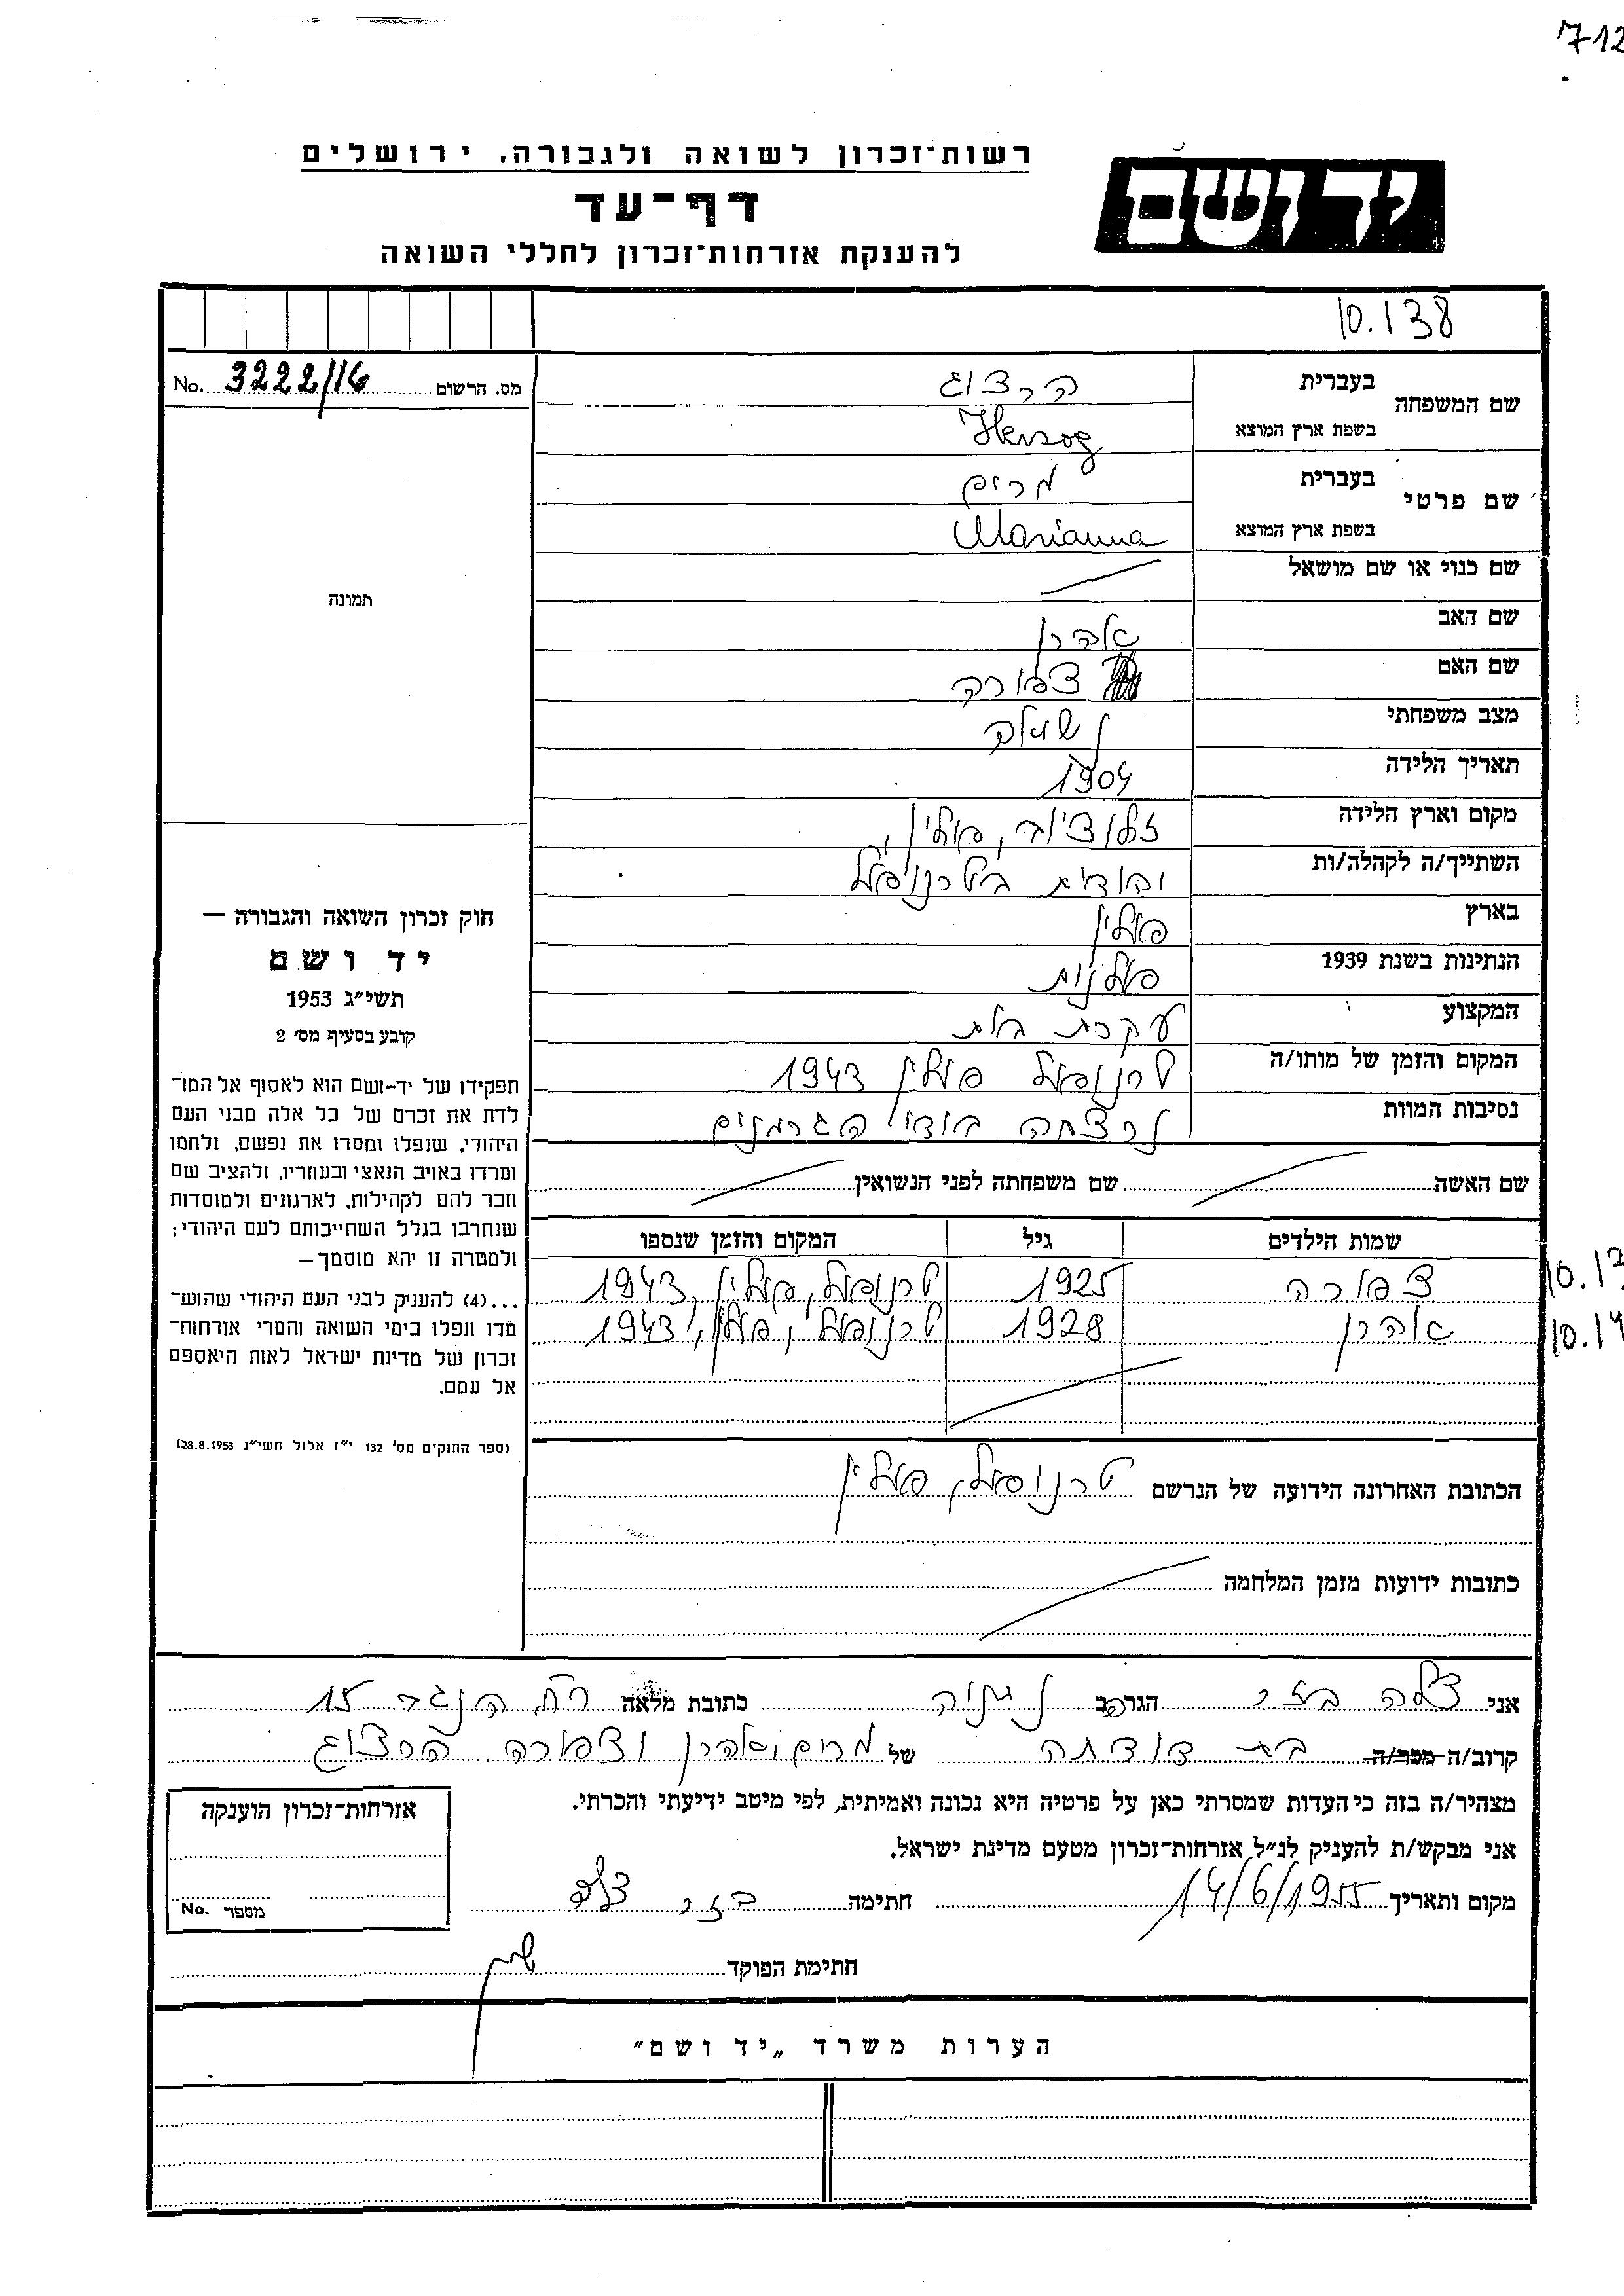 712
רשות־זכרון לשואה ולגבורה, ירושלים
יד ושם
דף־עד
להענקת אזרחות־זכרון לחללי השואה
10.138
מס. הרשום 3222/16 No.
שם המשפחה
בעברית הרצוג
בשפת ארץ המוצא Herzog
שם פרטי
בעברית מרים
בשפת ארץ המוצא Marianna
שם כנוי או שם מושאל
שם האב אהרן
שם האם צפורה
מצב משפחתי נשואה
תאריך הלידה 1904
מקום וארץ הלידה זלוציוב, פולין,
השתייך/ה לקהלה/ות יהודית בטרנופול
בארץ פולין
הנתינות בשנת 1939 פולנית
המקצוע עקרת בית
המקום והזמן של מותו/ה טרנופול פולין 1943
נסיבות המוות נרצחה בידי הגרמנים
שם האשה שם משפחתה לפני הנשואין
שמות הילדים גיל המקום והזמן שנספו
צפורה 1925 טרנופול, פולין, 1943
אהרן 1928 טרנופול, פולין, 1943
10.13
10.14
הכתובת האחרונה הידועה של הנרשם טרנופול, פולין
כתובות ידועות מזמן המלחמה
תמונה
חוק זכרון השואה והגבורה —
יד ושם
תשי״ג 1953
קובע בסעיף מס׳ 2
תפקידו של יד-ושם הוא לאסוף אל המו־
לדת את זכרם של כל אלה מבני העם
היהודי, שנפלו ומסרו את נפשם, נלחמו
ומרדו באויב הנאצי ובעוזריו, ולהציב שם
וזכר להם לקהילות, לארגונים ולמוסדות
שנחרבו בגלל השתייכותם לעם היהודי;
ולמטרה זו יהא מוסמך—
...(4) להעניק לבני העם היהודי שהוש־
מדו ונפלו בימי השואה והמרי אזרחות־
זכרון של מדינת ישראל לאות היאספם
אל עמם.
(ספר החוקים מס׳ 132 י״ז אלול תשי״ג 28.8.1953)
אני צלה בזר הגרה ב נתניה כתובת מלאה רח׳ הנגב 15
קרוב/ה מכר/ה בת דודתה של מרים, אהרן וצפורה הרצוג
מצהיר/ה בזה כי העדות שמסרתי כאן על פרטיה היא נכונה ואמיתית, לפי מיטב ידיעתי והכרתי.
אני מבקש/ת להעניק לנ״ל אזרחות־זכרון מטעם מדינת ישראל.
מקום ותאריך 14/6/1955 חתימה בזר צלה
חתימת הפוקד
אזרחות־זכרון הוענקה
מספר No.
הערות משרד „יד ושם״